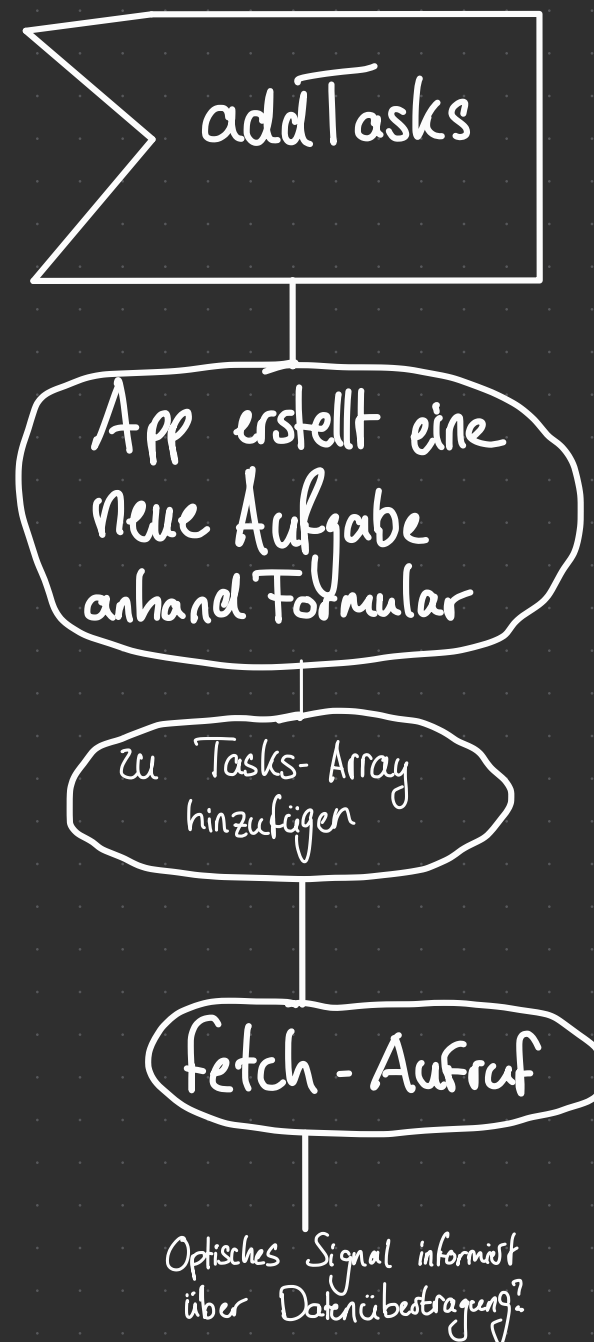 addTasks
App erstellt eine
neue Aufgabe
anhand Formular
zu Tasks-Array
hinzufügen
fetch - Aufruf
Optisches Signal informiert
über Datenübertragung?